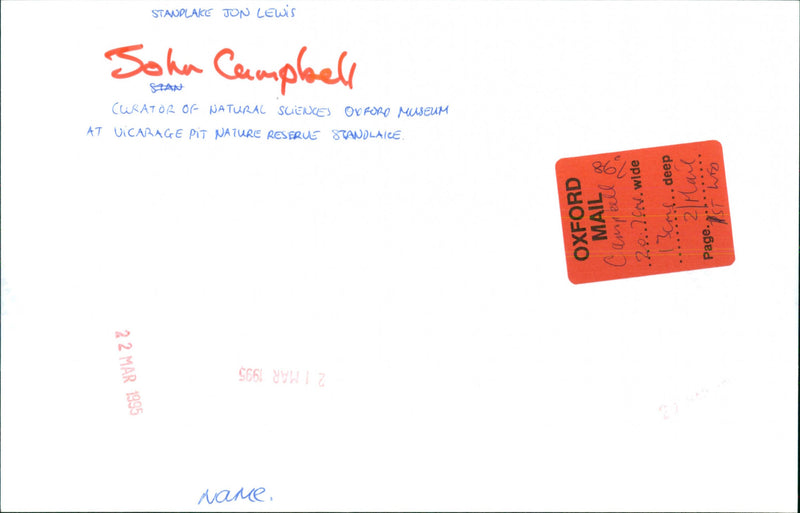 STANDLAKE JON LEWIS
John Campbell
STAN
CURATOR OF NATURAL SCIENCES OXFORD MUSEUM
AT VICARAGE PIT NATURE RESERVE STANDLAKE.
OXFORD
MAIL
Campbell
20.7cm. wide
13cms. deep
Page. 2/Mail
1ST
22 MAR 1995
21 MAR 1995
NAME.